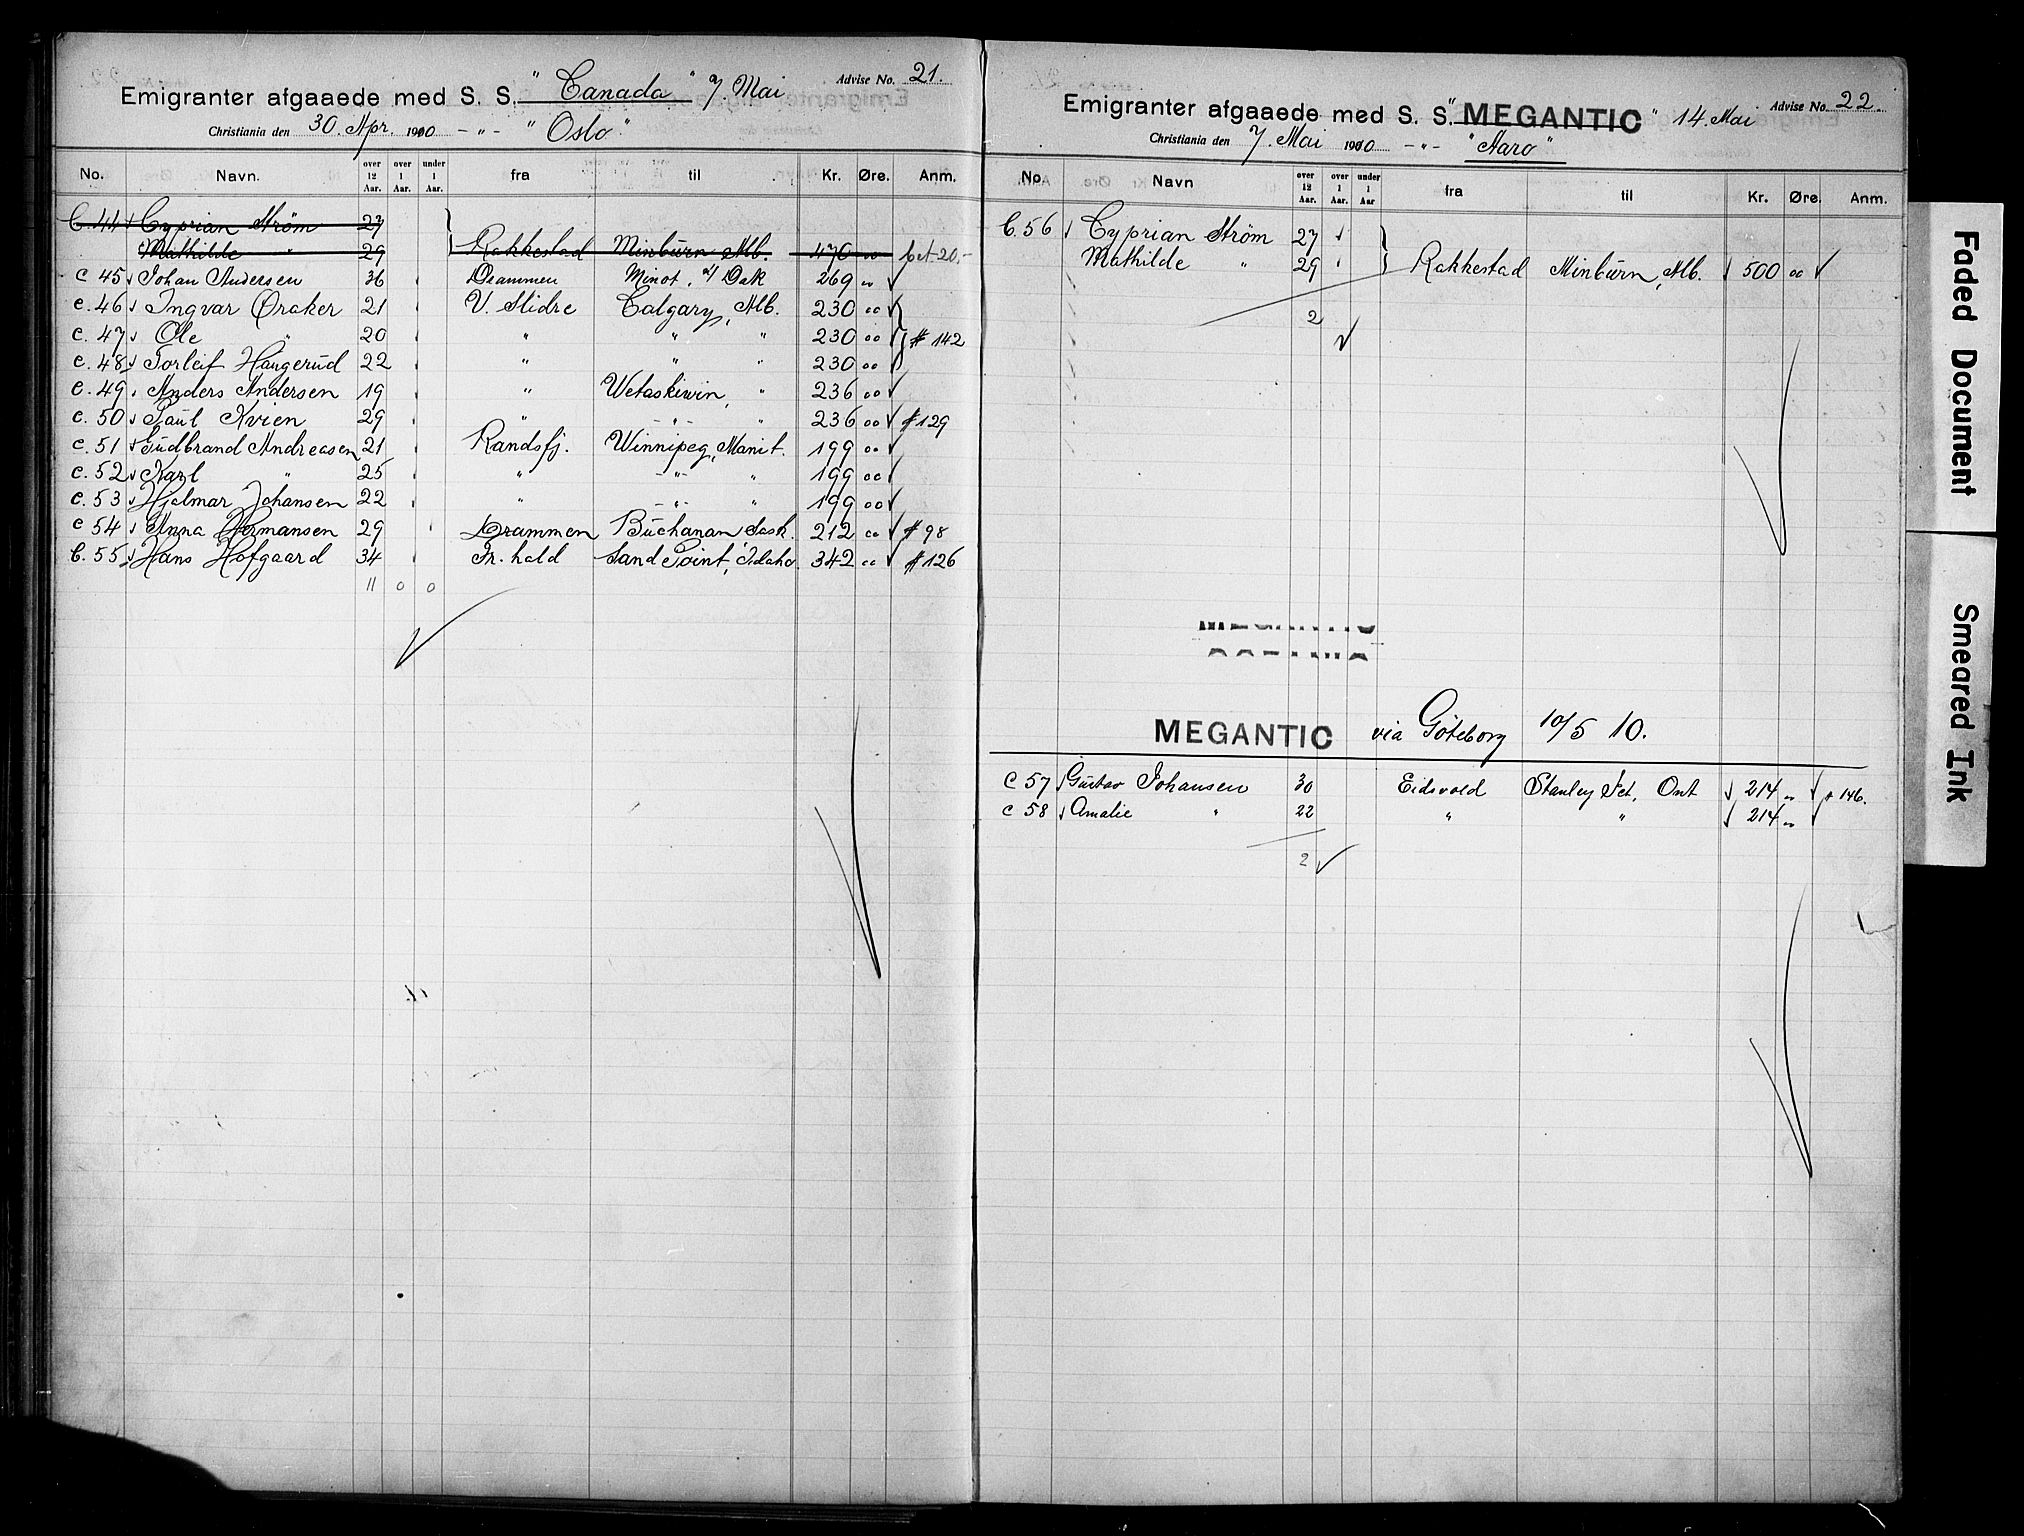 Advise No. 21.
Emigranter afgaaede med S. S. "Canada" 7. Mai
Christiania den 30. Apr. 1910 - " - "Oslo"
No. Navn. over 12 Aar. over 1 Aar. under 1 Aar. fra til Kr. Øre. Anm.
C. 44 Cyprian Strøm 27
Mathilde " 29 Rakkestad Minburn Alb. 470 00
C 45 Johan Andersen 36 Drammen Minot, N/Dak 269 00
C. 46 Ingvar Øraker 21 V. Slidre Calgary, Alb. 230 00
C. 47 Ole " 20 " " " 230 00 # 142
C. 48 Torleif Haugerud 22 " " " 230 00
C. 49 Anders Andersen 19 " Wetaskiwin, " 236 00
C. 50 Paul Kvien 29 " - " - " 236 00 # 129
C. 51 Gudbrand Andreasen 21 Randsfj. Winnipeg, Manit. 199 00
C. 52 Karl " 25 " - " - " 199 00
C. 53 Hjalmar Johansen 22 " - " - " 199 00
C 54 Anna Hermansen 29 Drammen Buchanan Sask. 212 00 # 98
C. 55 Hans Hofgaard 34 Fr. hald Sand Point, Idaho 342 00 # 126
11 0 0
Advise No. 22.
Emigranter afgaaede med S. S. "MEGANTIC" 14. Mai
Christiania den 7. Mai 1910 - " - "Aaro"
No. Navn over 12 Aar. over 1 Aar. under 1 Aar fra til Kr. Øre. Anm.
C. 56 Cyprian Strøm 27
Mathilde " 29 Rakkestad Minburn, Alb. 500 00
2
MEGANTIC
MEGANTIC via Göteborg 10/5 10.
C 57 Gustav Johansen 30 Eidsvold Stanley Jct, Ont 214 00 # 146.
C 58 Amalie " 22 " " 214 00
2
Faded Document
Smeared Ink